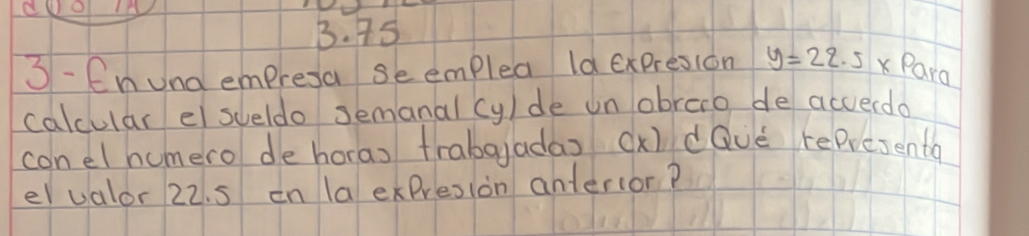 3.75
3-En una empresa se emplea la expresión y=22.5 x Para
calcular el sueldo semanal (y) de un obrero de acuerdo
con el numero de horas trabajadas (x) ¿Qué representa
el valor 22.5 en la expresión anterior?